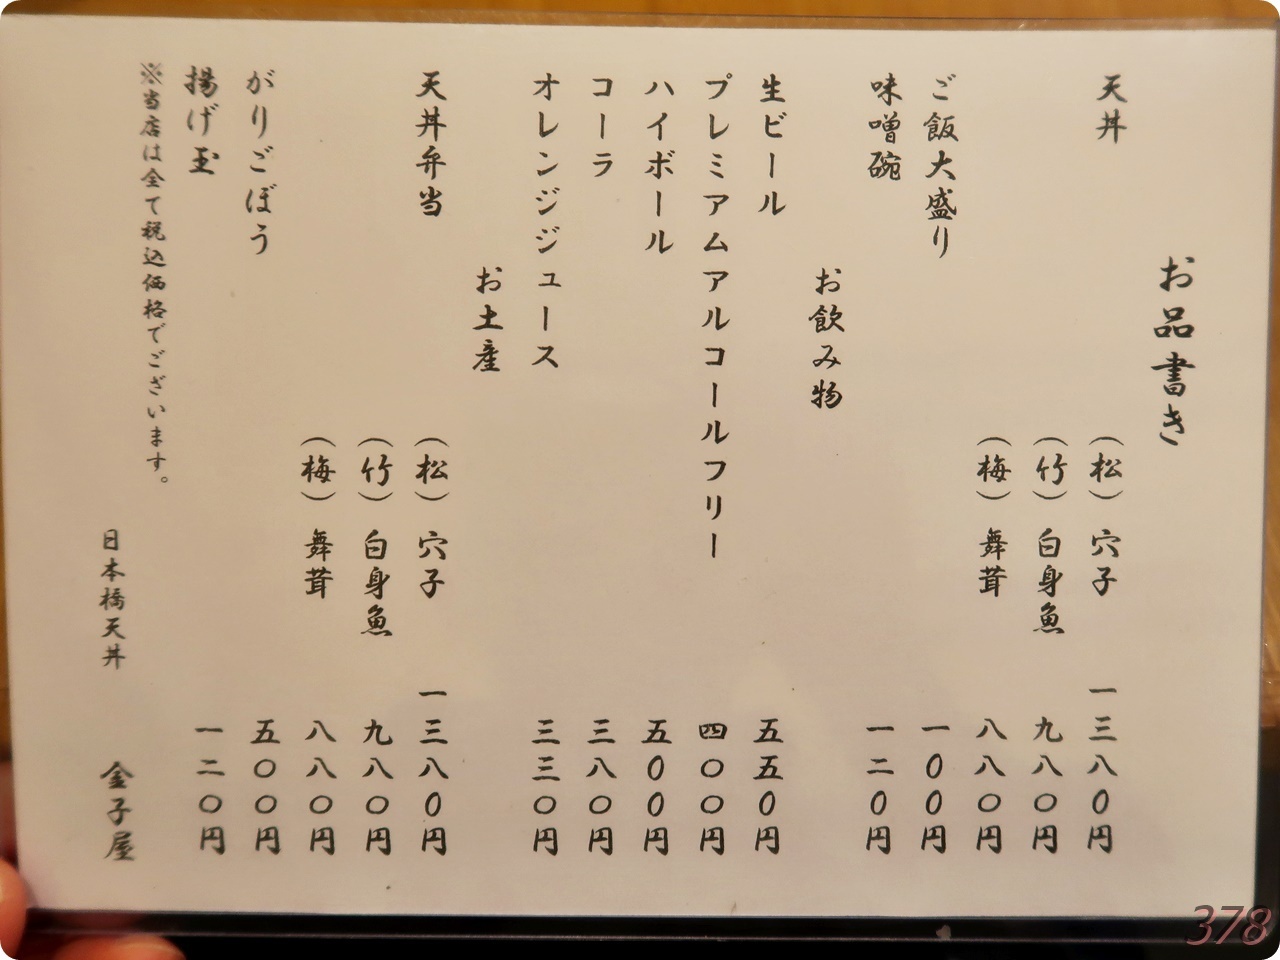 お品書き
天丼 (松) 穴子 一三八〇円
(竹) 白身魚 九八〇円
(梅) 舞茸 八八〇円
ご飯大盛り 一〇〇円
味噌碗 一二〇円
お飲み物
生ビール 五五〇円
プレミアムアルコールフリー 四〇〇円
ハイボール 五〇〇円
コーラ 三八〇円
オレンジジュース 三三〇円
お土産
天丼弁当 (松) 穴子 一三八〇円
(竹) 白身魚 九八〇円
(梅) 舞茸 八八〇円
がりごぼう 五〇〇円
揚げ玉 一二〇円
※当店は全て税込価格でございます。
日本橋天丼 金子屋
378